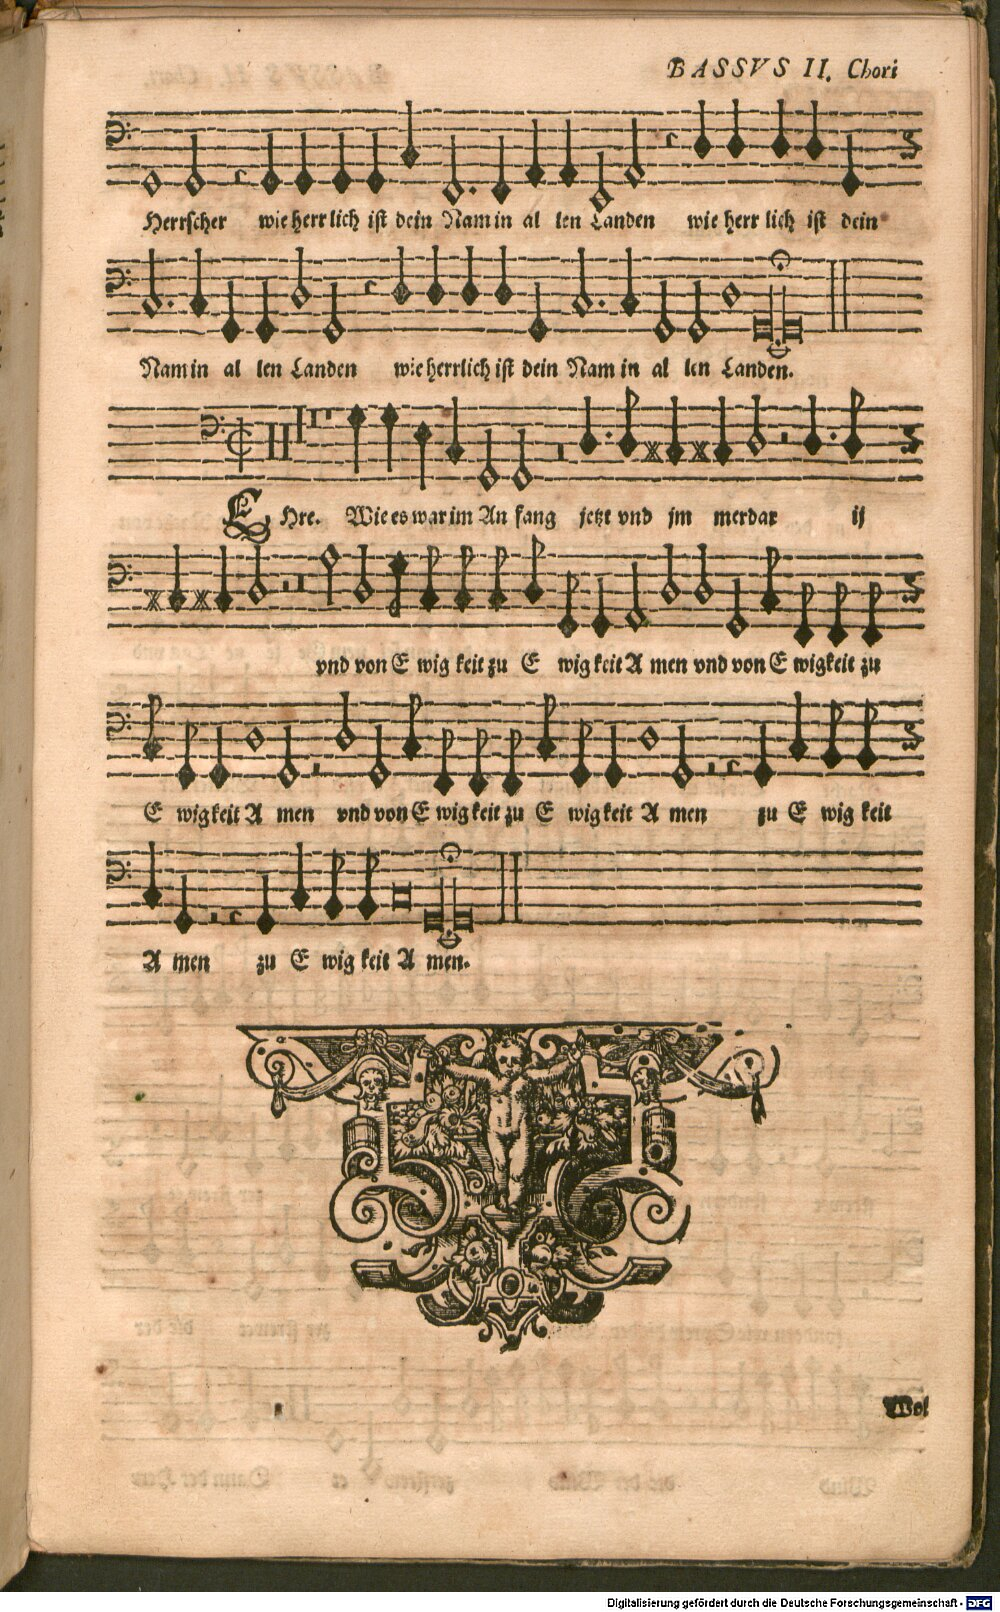 BASSVS II. Chori
Herrscher wie herr lich ist dein Nam in al len Landen wie herr lich ist dein
Nam in al len Landen wie herrlich ist dein Nam in al len Landen.
EHre. Wie es war im An fang jetzt vnd jm merdar ij
vnd von E wig keit zu E wig keit A men vnd von E wigkeit zu
E wigkeit A men vnd von E wig keit zu E wig keit A men zu E wig keit
A men zu E wig keit A men.
Wol
Digitalisierung gefördert durch die Deutsche Forschungsgemeinschaft - DFG